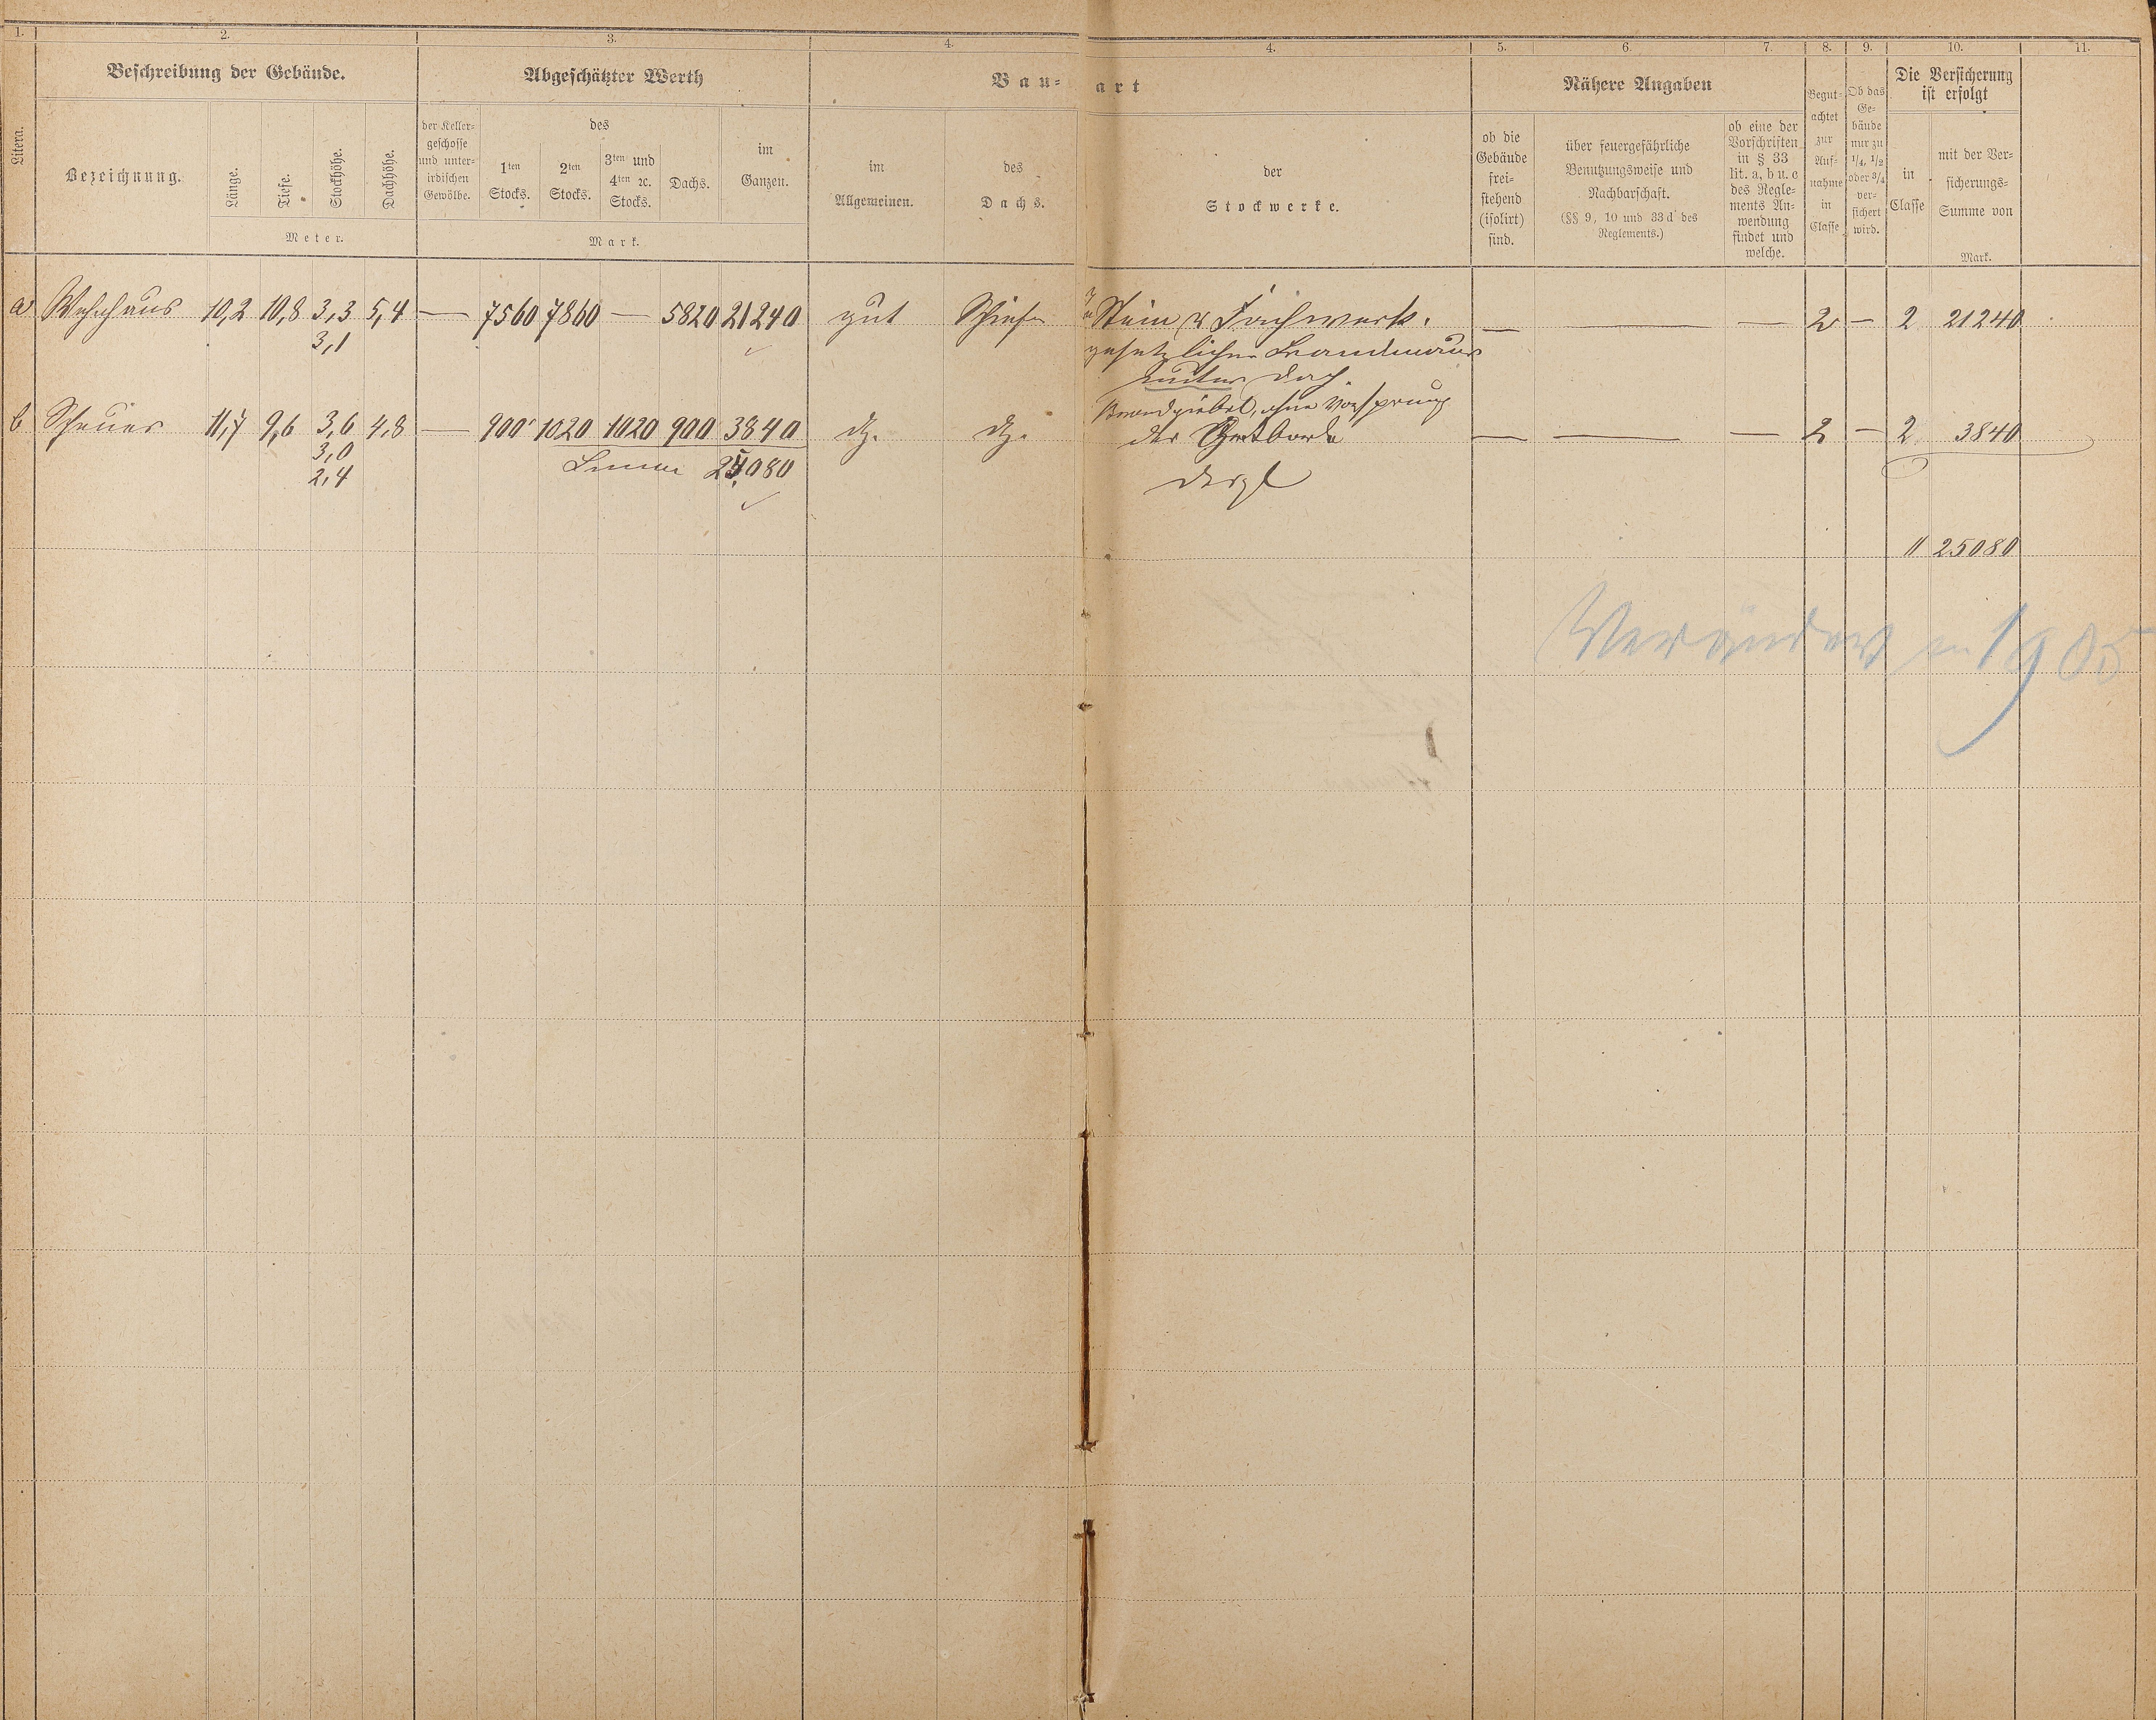 1. 2. 3. 4. 4. 5. 6. 7. 8. 9. 10. 11.
Litera.
Beschreibung der Gebäude.
Bezeichnung.
Länge.
Tiefe.
Stockhöhe.
Dachhöhe.
Meter.
Abgeschätzter Werth
der Keller-
geschosse
und unter-
irdischen
Gewölbe.
des
1ten
Stocks.
2ten
Stocks.
3ten und
4ten ꝛc.
Stocks.
Dachs.
im
Ganzen.
Mark.
Bau-art
im
Allgemeinen.
des
Dachs.
der
Stockwerke.
Nähere Angaben
ob die
Gebäude
frei-
stehend
(isolirt)
sind.
über feuergefährliche
Benutzungsweise und
Nachbarschaft.
(§§ 9, 10 und 33 d des
Reglements.)
ob eine der
Vorschriften
in § 33
lit. a, b u. c
des Regle-
ments An-
wendung
findet und
welche.
Begut-
achtet
zur
Auf-
nahme
in
Classe
Ob das
Ge-
bäude
nur zu
1/4, 1/2
oder 3/4
ver-
sichert
wird.
Die Versicherung
ist erfolgt
in
Classe
mit der Ver-
sicherungs-
Summe von
Mark.
a Wohnhaus 10,2 10,8 3,3 5,4 — 7560 7860 — 5820 21240 gut Schiefer Stein u Fachwerk. — — — 2 — 2 21240
3,1
gesetzliche Brandmauer
unter Dach.
Brandgiebel, ohne Vorsprung
b Scheuer 11,7 9,6 3,6 4,8 — 900 1020 1020 900 3840 dg. dg. der Ortborde — — — 2 — 2 3840
3,0
Summa 25080
2,4
dergl
11 25080
Verändert in 1905